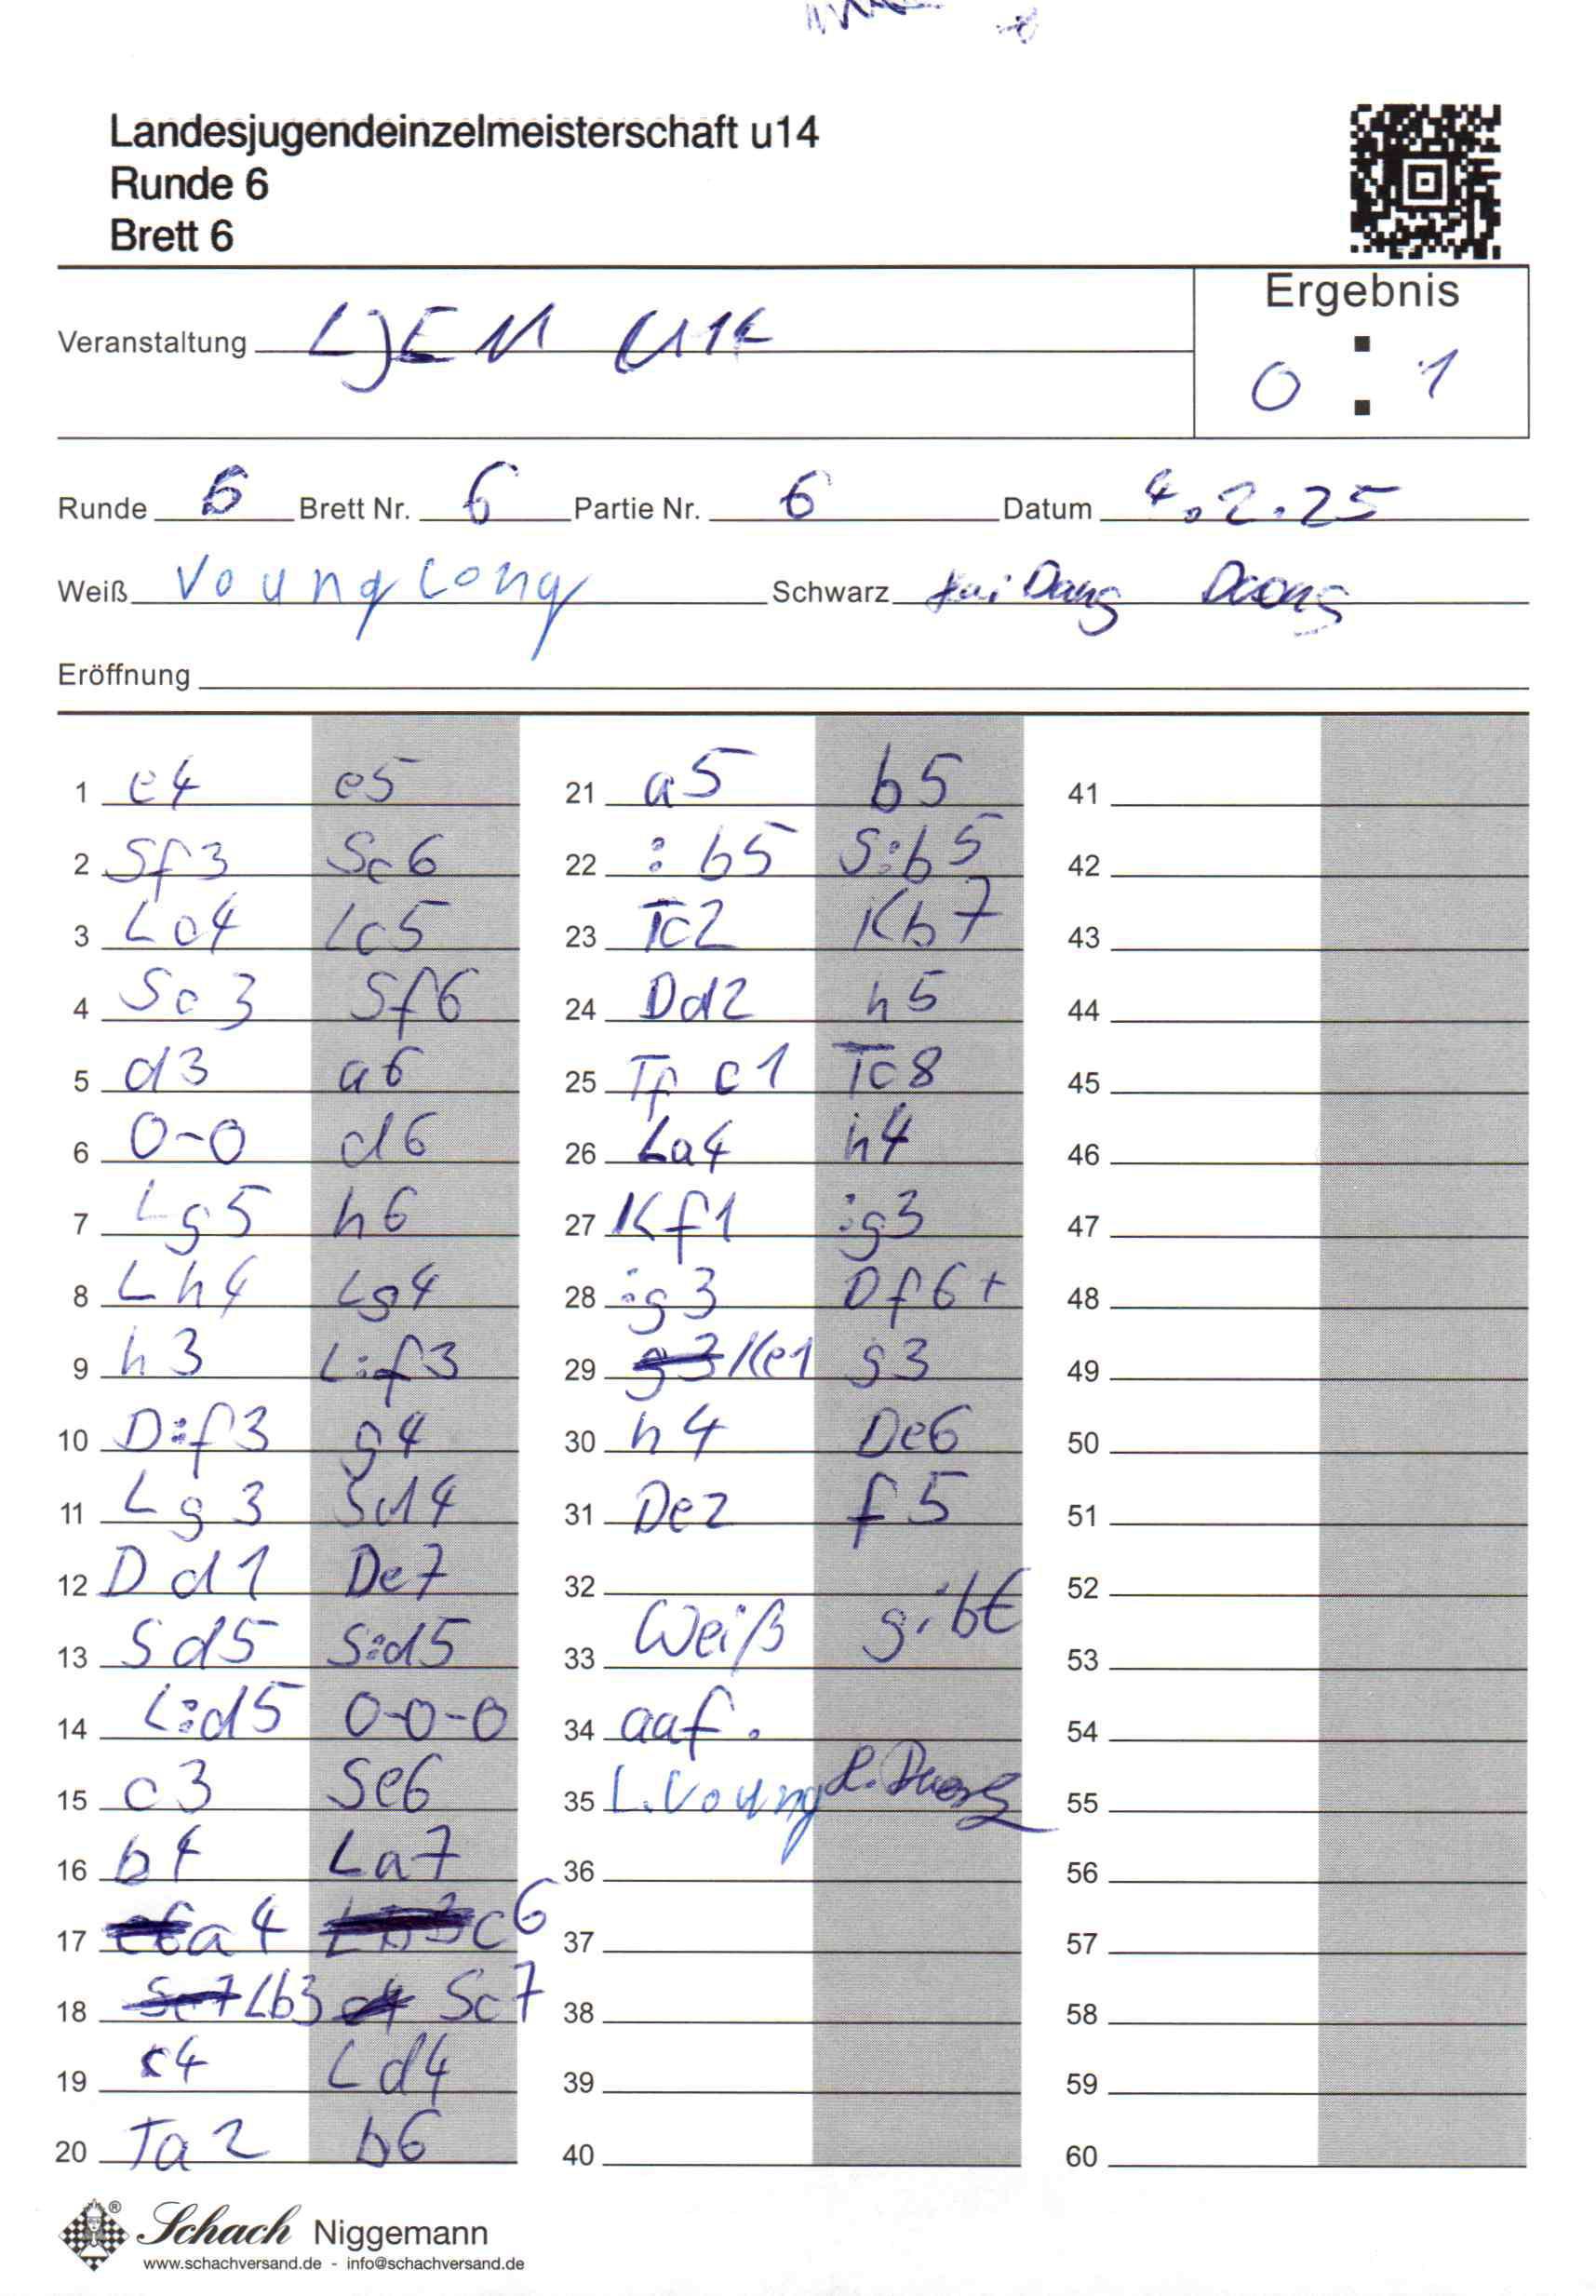 Landesjugendeinzelmeisterschaft u14
Runde 6
Brett 6
Ergebnis
Veranstaltung LJEM U14
0 : 1
Runde 6 Brett Nr. 6 Partie Nr. 6 Datum 4.2.25
Weiß Voung Long Schwarz Dang
Eröffnung
1 e4 e5 21 a5 b5 41
2 Sf3 Sc6 22 :b5 S:b5 42
3 Lc4 Lc5 23 Tc2 Kb7 43
4 Sc3 Sf6 24 Dd2 h5 44
5 d3 a6 25 Tfc1 Tc8 45
6 0-0 d6 26 La4 h4 46
7 Lg5 h6 27 Kf1 :g3 47
8 Lh4 Lg4 28 :g3 Df6+ 48
9 h3 L:f3 29 Ke1 g3 49
10 D:f3 g4 30 h4 De6 50
11 Lg3 Sd4 31 De2 f5 51
12 Dd1 De7 32 52
13 Sd5 S:d5 33 Weiß gibt 53
14 L:d5 0-0-0 34 aaf. 54
15 c3 Se6 35 L. Voung 55
16 b4 La7 36 56
17 a4 c6 37 57
18 Lb3 Sc7 38 58
19 c4 Ld4 39 59
20 Ta2 b6 40 60
Schach Niggemann
www.schachversand.de - info@schachversand.de